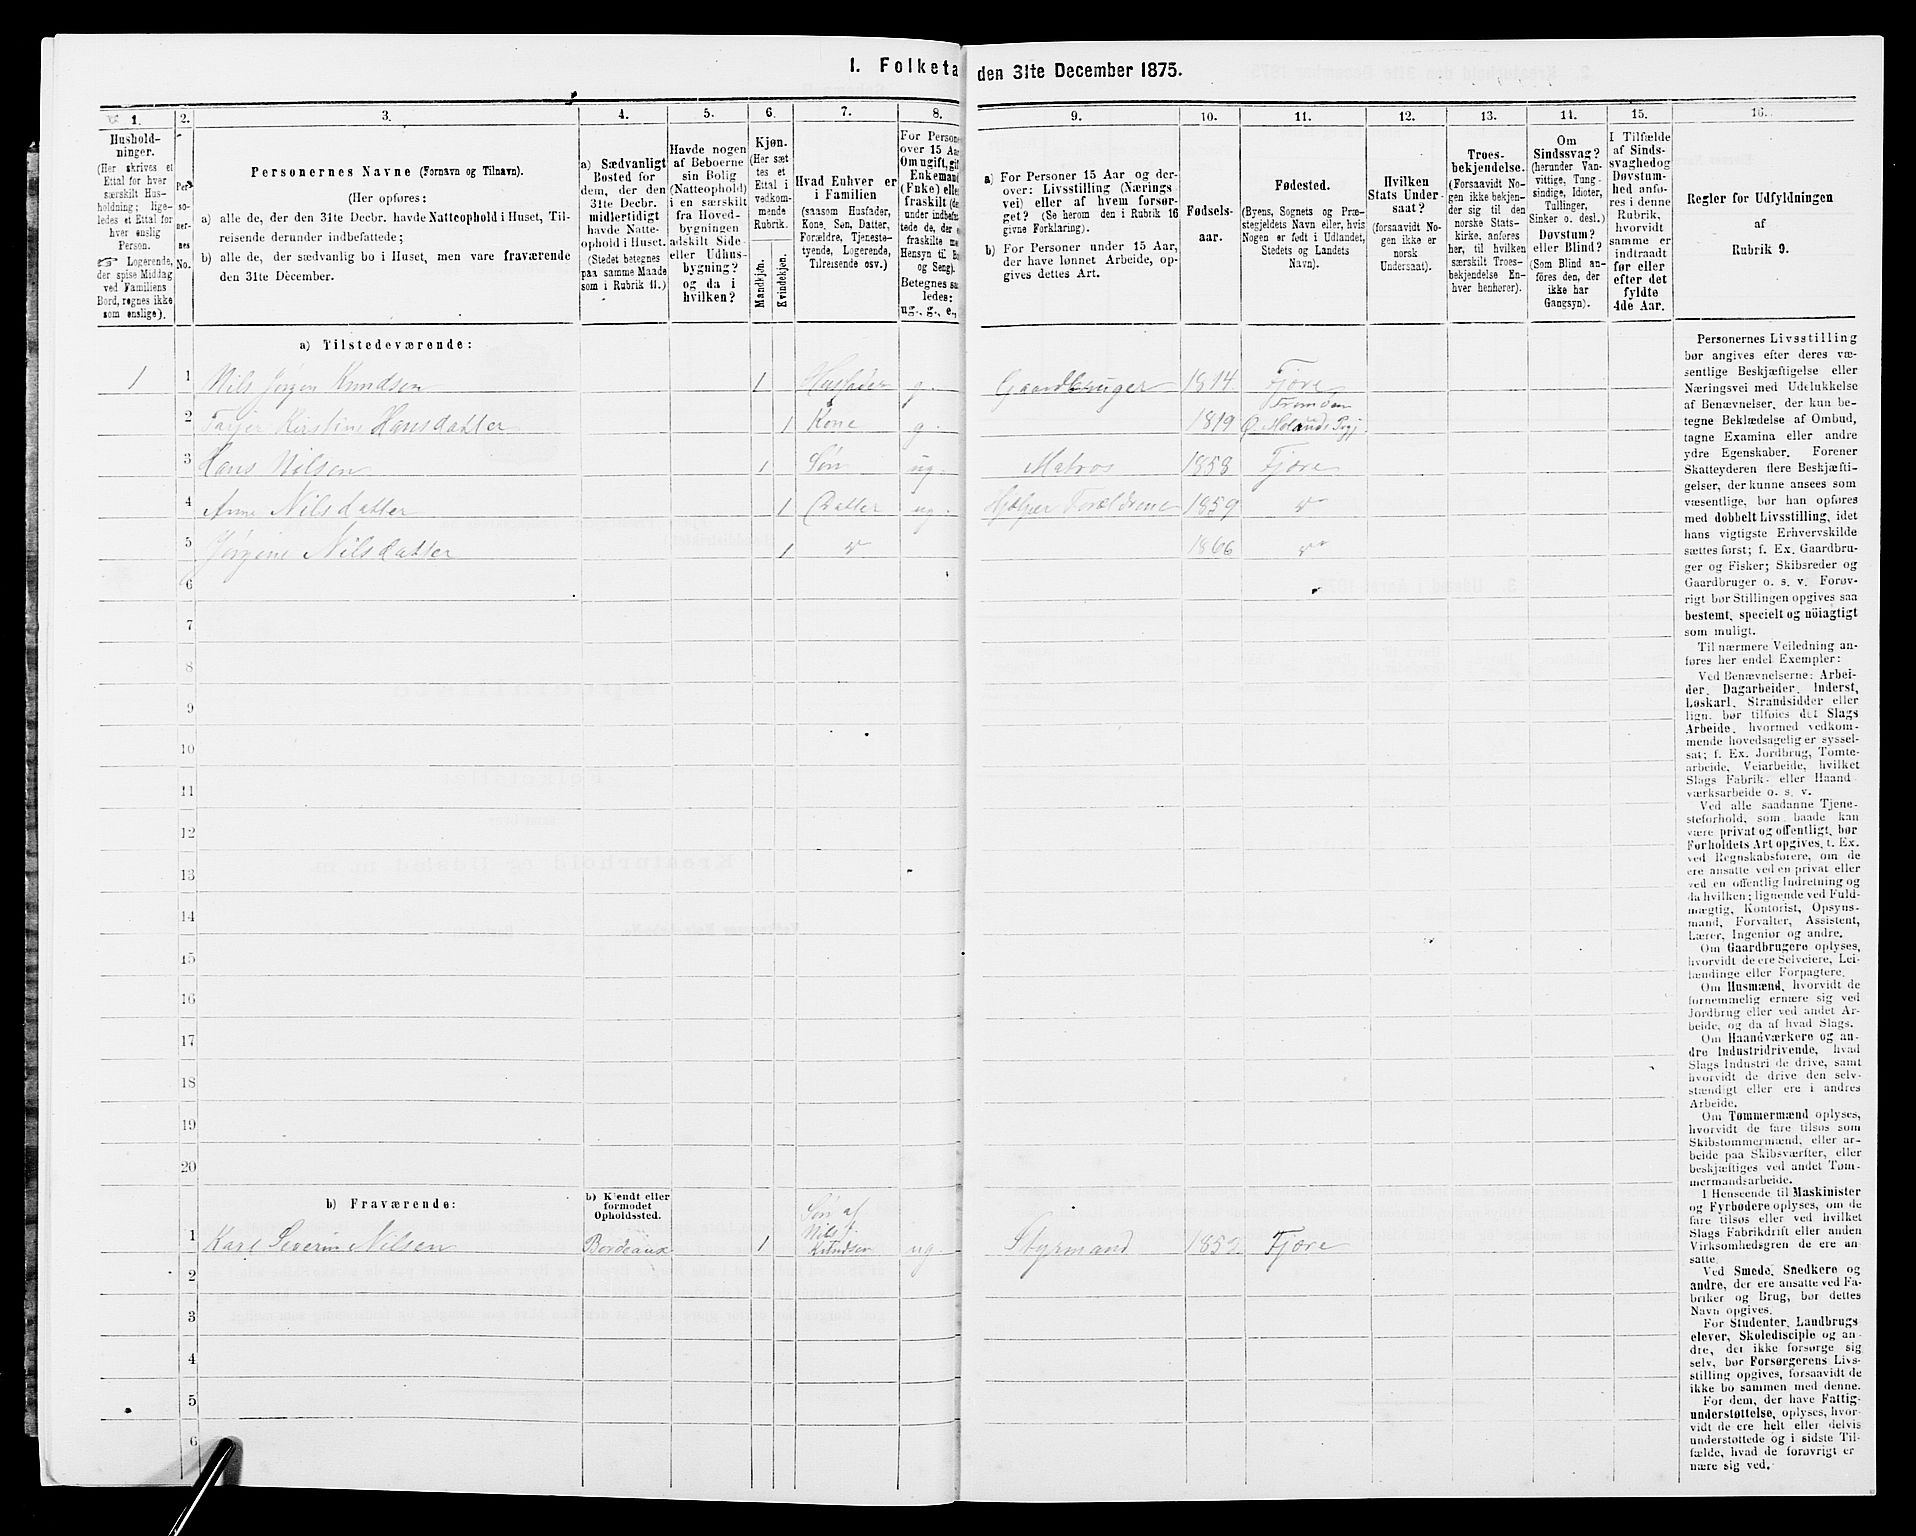 1. Folketa
den 31te December 1875.
1.
2.
3.
4.
5.
6.
7.
8.
9.
10.
11.
12.
13.
14.
15.
16.
Hushold-
ninger.
(Her skrives et
Ettal for hver
særskilt Hus-
holdning; lige-
ledes et Ettal for
hver enslig
Person.
☞ Logerende,
der spise Middag
ved Familiens
Bord, regnes ikke
som enslige).
Per-
so-
ner-
nes
No.
Personernes Navne (Fornavn og Tilnavn).
(Her opføres:
a) alle de, der den 31te Decbr. havde Natteophold i Huset, Til-
reisende derunder indbefattede;
b) alle de, der sædvanlig bo i Huset, men vare fraværende
den 31te December.
a) Sædvanligt
Bosted for
dem, der den
31te Decbr.
midlertidigt
havde Natte-
ophold i Huset.
(Stedet betegnes
paa samme Maade
som i Rubrik 11.)
Havde nogen
af Beboerne
sin Bolig
(Natteophold)
i en særskilt
fra Hoved-
bygningen
adskilt Side-
eller Udhus-
bygning?
og da i
hvilken?
Kjøn.
(Her sæt-
tes et
Ettal i
vedkom-
mende
Rubrik.
Mandkjøn.
Kvindekjøn.
Hvad Enhver er
i Familien
(saasom Husfader,
Kone, Søn, Datter,
Forældre, Tjeneste-
tyende, Logerende,
Tilreisende osv.)
For Persone
over 15 Aar
Om ugift, gif
Enkemand
(Enke) elle
fraskilt (de
under indbefat-
tede de, der e
fraskilte me
Hensyn til Bo
og Seng).
Betegnes saa
ledes:
ug., g., e.,
a) For Personer 15 Aar og der-
over: Livsstilling (Nærings
vei) eller af hvem forsør-
get? (Se herom den i Rubrik 16
givne Forklaring).
b) For Personer under 15 Aar,
der have lønnet Arbeide, op-
gives dettes Art.
Fødsels-
aar.
Fødested.
(Byens, Sognets og Præ-
stegjeldets Navn eller, hvis
Nogen er født i Udlandet,
Stedets og Landets
Navn).
Hvilken
Stats Under-
saat?
(forsaavidt No-
gen ikke er
norsk
Undersaat).
Troes-
bekjendelse.
(Forsaavidt No-
gen ikke bekjen-
der sig til den
norske Stats-
kirke, anføres
her, til hvilken
særskilt Troes-
bekjendelse En-
hver henhører).
Om
Sindssvag?
(herunder Van-
vittige, Tung-
sindige, Idioter,
Tullinger,
Sinker o. desl.)
Døvstum?
eller Blind?
(Som Blind an-
føres den, der
ikke har
Gangsyn).
I Tilfælde
af Sinds-
svaghed og
Døvstum-
hed anfø-
res i denne
Rubrik,
hvorvidt
samme er
indtraadt
før eller
efter det
fyldte
4de Aar.
Regler for Udfyldningen
af
Rubrik 9.
a) Tilstedeværende:
1 1 Nils Jørgen Knudsen 1 Husfader g. Gaardbruger 1814 Fjære
2 Kirstine Hansdatter 1 Kone g. 1819
3 Hans Nilsen 1 Søn ug. Matros 1858 Fjære
4 Anne Nilsdatter 1 Datter ug. Hjælper Forældrene 1859 "
5 Jørgine Nilsdatter 1 " 1866 "
6
7
8
9
10
11
12
13
14
15
16
17
18
19
20
b) Fraværende:
b) Kjendt eller
formodet
Opholdssted.
1 Karl Severin Nilsen Bordeaux 1 Søn af
Nils J.
Knudsen ug. Styrmand 1852 Fjære
2
3
4
5
6
Personernes Livsstilling
bør angives efter deres væ-
sentlige Beskjæftigelse eller
Næringsvei med Udelukkelse
af Benævnelser, der kun be-
tegne Beklædelse af Ombud,
tagne Examina eller andre
ydre Egenskaber. Forener
Skatteyderen flere Beskjæfti-
gelser, der kunne ansees som
væsentlige, bør han opføres
med dobbelt Livsstilling, idet
hans vigtigste Erhvervskilde
sættes først; f. Ex. Gaardbru-
ger og Fisker; Skibsreder og
Gaardbruger o. s. v. Forøv-
rigt bør Stillingen opgives saa
bestemt, specielt og nøiagtigt
som muligt.
Til nærmere Veiledning an-
føres her endel Exempler:
Ved Benævnelserne: Arbei-
der, Dagarbeider, Inderst,
Løskarl, Strandsidder eller
lign. bør tilføies det Slags
Arbeide, hvormed vedkom-
mende hovedsagelig er syssel-
sat; f. Ex. Jordbrug, Tomte-
arbeide, Veiarbeide, hvilket
Slags Fabrik- eller Haand
værksarbeide o. s. v.
Ved alle saadanne Tjene-
steforhold, som baade kan
være privat og offentligt, bør
Forholdets Art opgives, f. Ex.
ved Regnskabsførere, om de
ere ansatte ved en privat eller
ved en offentlig Indretning og
da hvilken; lignende ved Fuld-
mægtig, Kontorist, Opsyns-
mand, Forvalter, Assistent,
Lærer, Ingeniør og andre.
Om Gaardbrugere oplyses,
hvorvidt de ere Selveiere, Lei-
lændinge eller Forpagtere.
Om Husmænd, hvorvidt de
fornemmelig ernære sig ved
Jordbrug eller ved andet Ar-
beide, og da af hvad Slags.
Om Haandværkere og an-
dre Industridrivende, hvad
Slags Industri de drive, samt
hvorvidt de drive den selv-
stændigt eller ere i andres
Arbeide.
Om Tømmermænd oplyses,
hvorvidt de fare tilsøs som
Skibstømmermænd, eller ar-
beide paa Skibsværfter, eller
beskjæftiges ved andet Tøm-
mermandsarbeide.
I Henseende til Maskinister
og Fyrbødere oplyses, om de
fare tilsøs eller ved hvilket
Slags Fabrikdrift eller anden
Virksomhedsgren de ere an-
satte.
Ved Smede, Snedkere og
andre, der ere ansatte ved Fa-
briker og Brug, bør dettes
Navn opgives.
For Studenter, Landbrugs
elever, Skoledisciple og an-
dre, der ikke forsørge sig
selv, bør Forsørgerens Livs-
stilling opgives, forsaavidt de
ikke bo sammen med denne.
For dem, der have Fattig-
understøttelse, oplyses, hvor-
vidt de ere helt eller delvis
understøttede og i sidste Til-
fælde, hvad de forøvrigt er
nære sig ved.